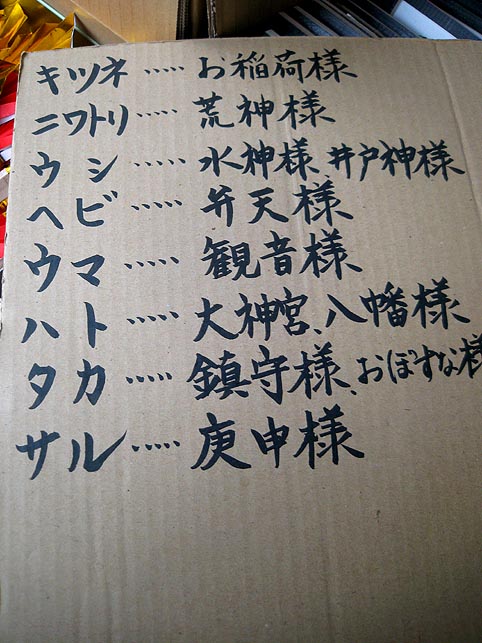 キツネ ‥‥‥ お稲荷様
ニワトリ ‥‥‥ 荒神様
ウシ ‥‥‥ 水神様、井戸神様
ヘビ ‥‥‥ 弁天様
ウマ ‥‥‥ 観音様
ハト ‥‥‥ 大神宮、八幡様
タカ ‥‥‥ 鎮守様、おぼすな様
サル ‥‥‥ 庚申様